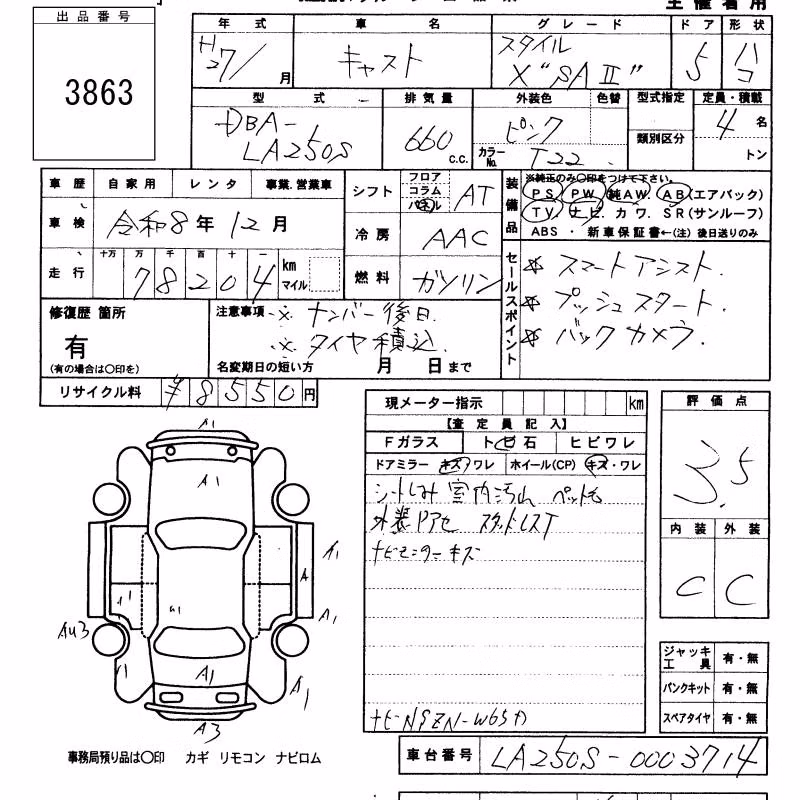 出品番号
3863
年式 車名 グレード ドア 形状
H27/ 月 キャスト スタイル
X "SA II" 5 ハコ
型式 排気量 外装色 色替 型式指定 定員・積載
DBA-
LA250S 660 C.C. ピンク 4 名
カラーNo. T22 類別区分 トン
車歴 自家用 レンタ 事業.営業車
シフト フロア コラム パネル AT
装備品 ※純正のみ〇印をつけて下さい。
PS PW 純AW. AB(エアバック)
TV. ナビ. カワ. SR(サンルーフ)
ABS ・ 新車保証書←(注) 後日送りのみ
車検 令和8年12月
冷房 AAC
走行 十万 万 千 百 十 一
78204 km マイル
燃料 ガソリン
セールスポイント
☆ スマートアシスト.
☆ プッシュスタート.
☆ バックカメラ.
修復歴 箇所
有
(有の場合は〇印を)
注意事項 ※ ナンバー後日
※ タイヤ積込.
名変期日の短い方 月 日まで
リサイクル料 ¥8550円
現メーター指示 km
【査定員記入】
Fガラス トビ石 ヒビワレ
ドアミラー キズ ワレ ホイール(CP) キズ・ワレ
シートしみ 室内汚れ ペット毛
外装
ナビモニターキズ
評価点
3.5
内装 外装
C C
A1
A1
A1
A
A1
A1
A1
AU3
A1
A1
A1
A3
ジャッキ工具 有・無
パンクキット 有・無
スペアタイヤ 有・無
ナビ-NSZN-W65D
事務局預り品は〇印 カギ リモコン ナビロム
車台番号 LA250S-0003714